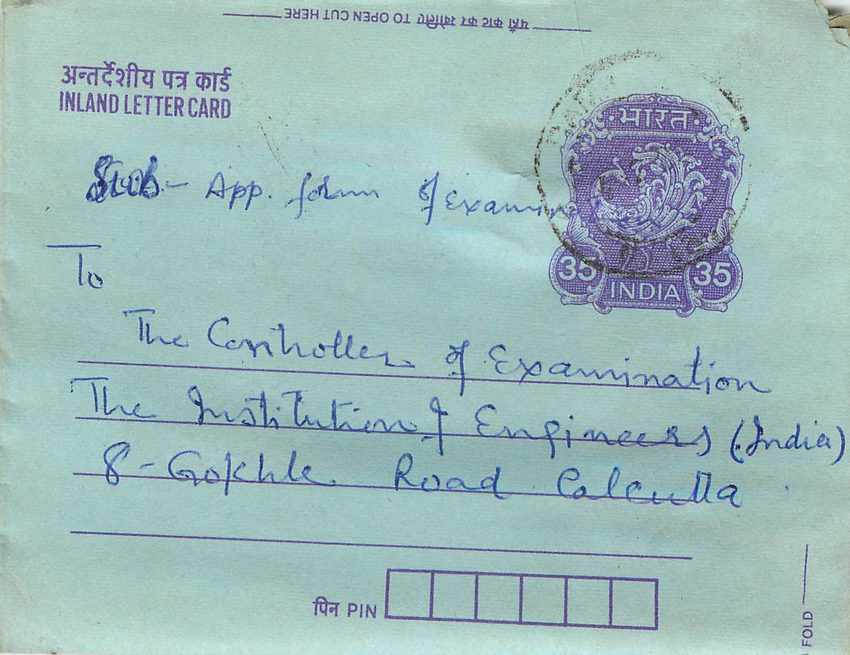 यहाँ काट कर खोलिए TO OPEN CUT HERE
अन्तर्देशीय पत्र कार्ड
INLAND LETTER CARD
भारत
35 INDIA 35
Sub- App. form of Examin
To
The Controller of Examination
The Institution of Engineers (India)
8-Gokhle Road Calcutta
पिन PIN
FOLD